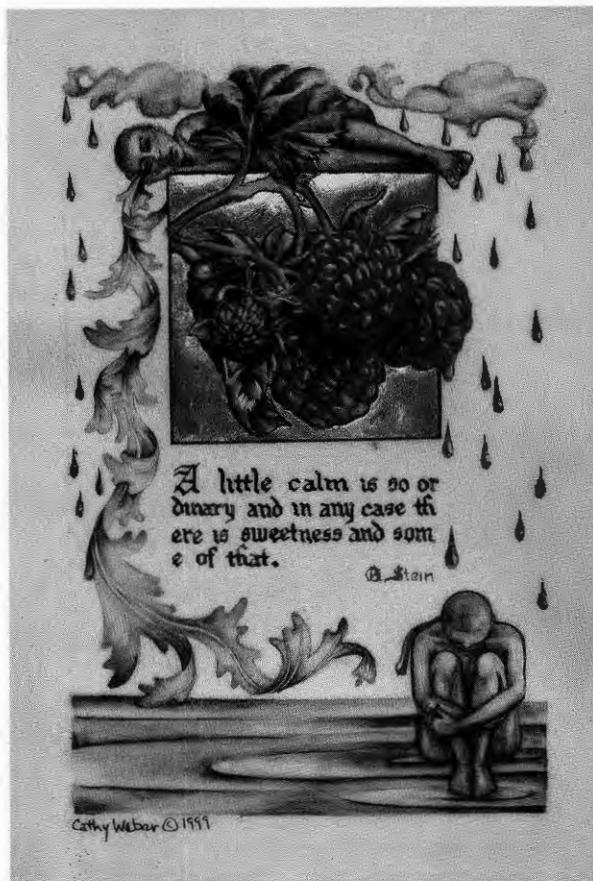 A little calm is so or
dinary and in any case th
ere is sweetness and som
e of that.
G. Stein
Cathy Weber © 1999